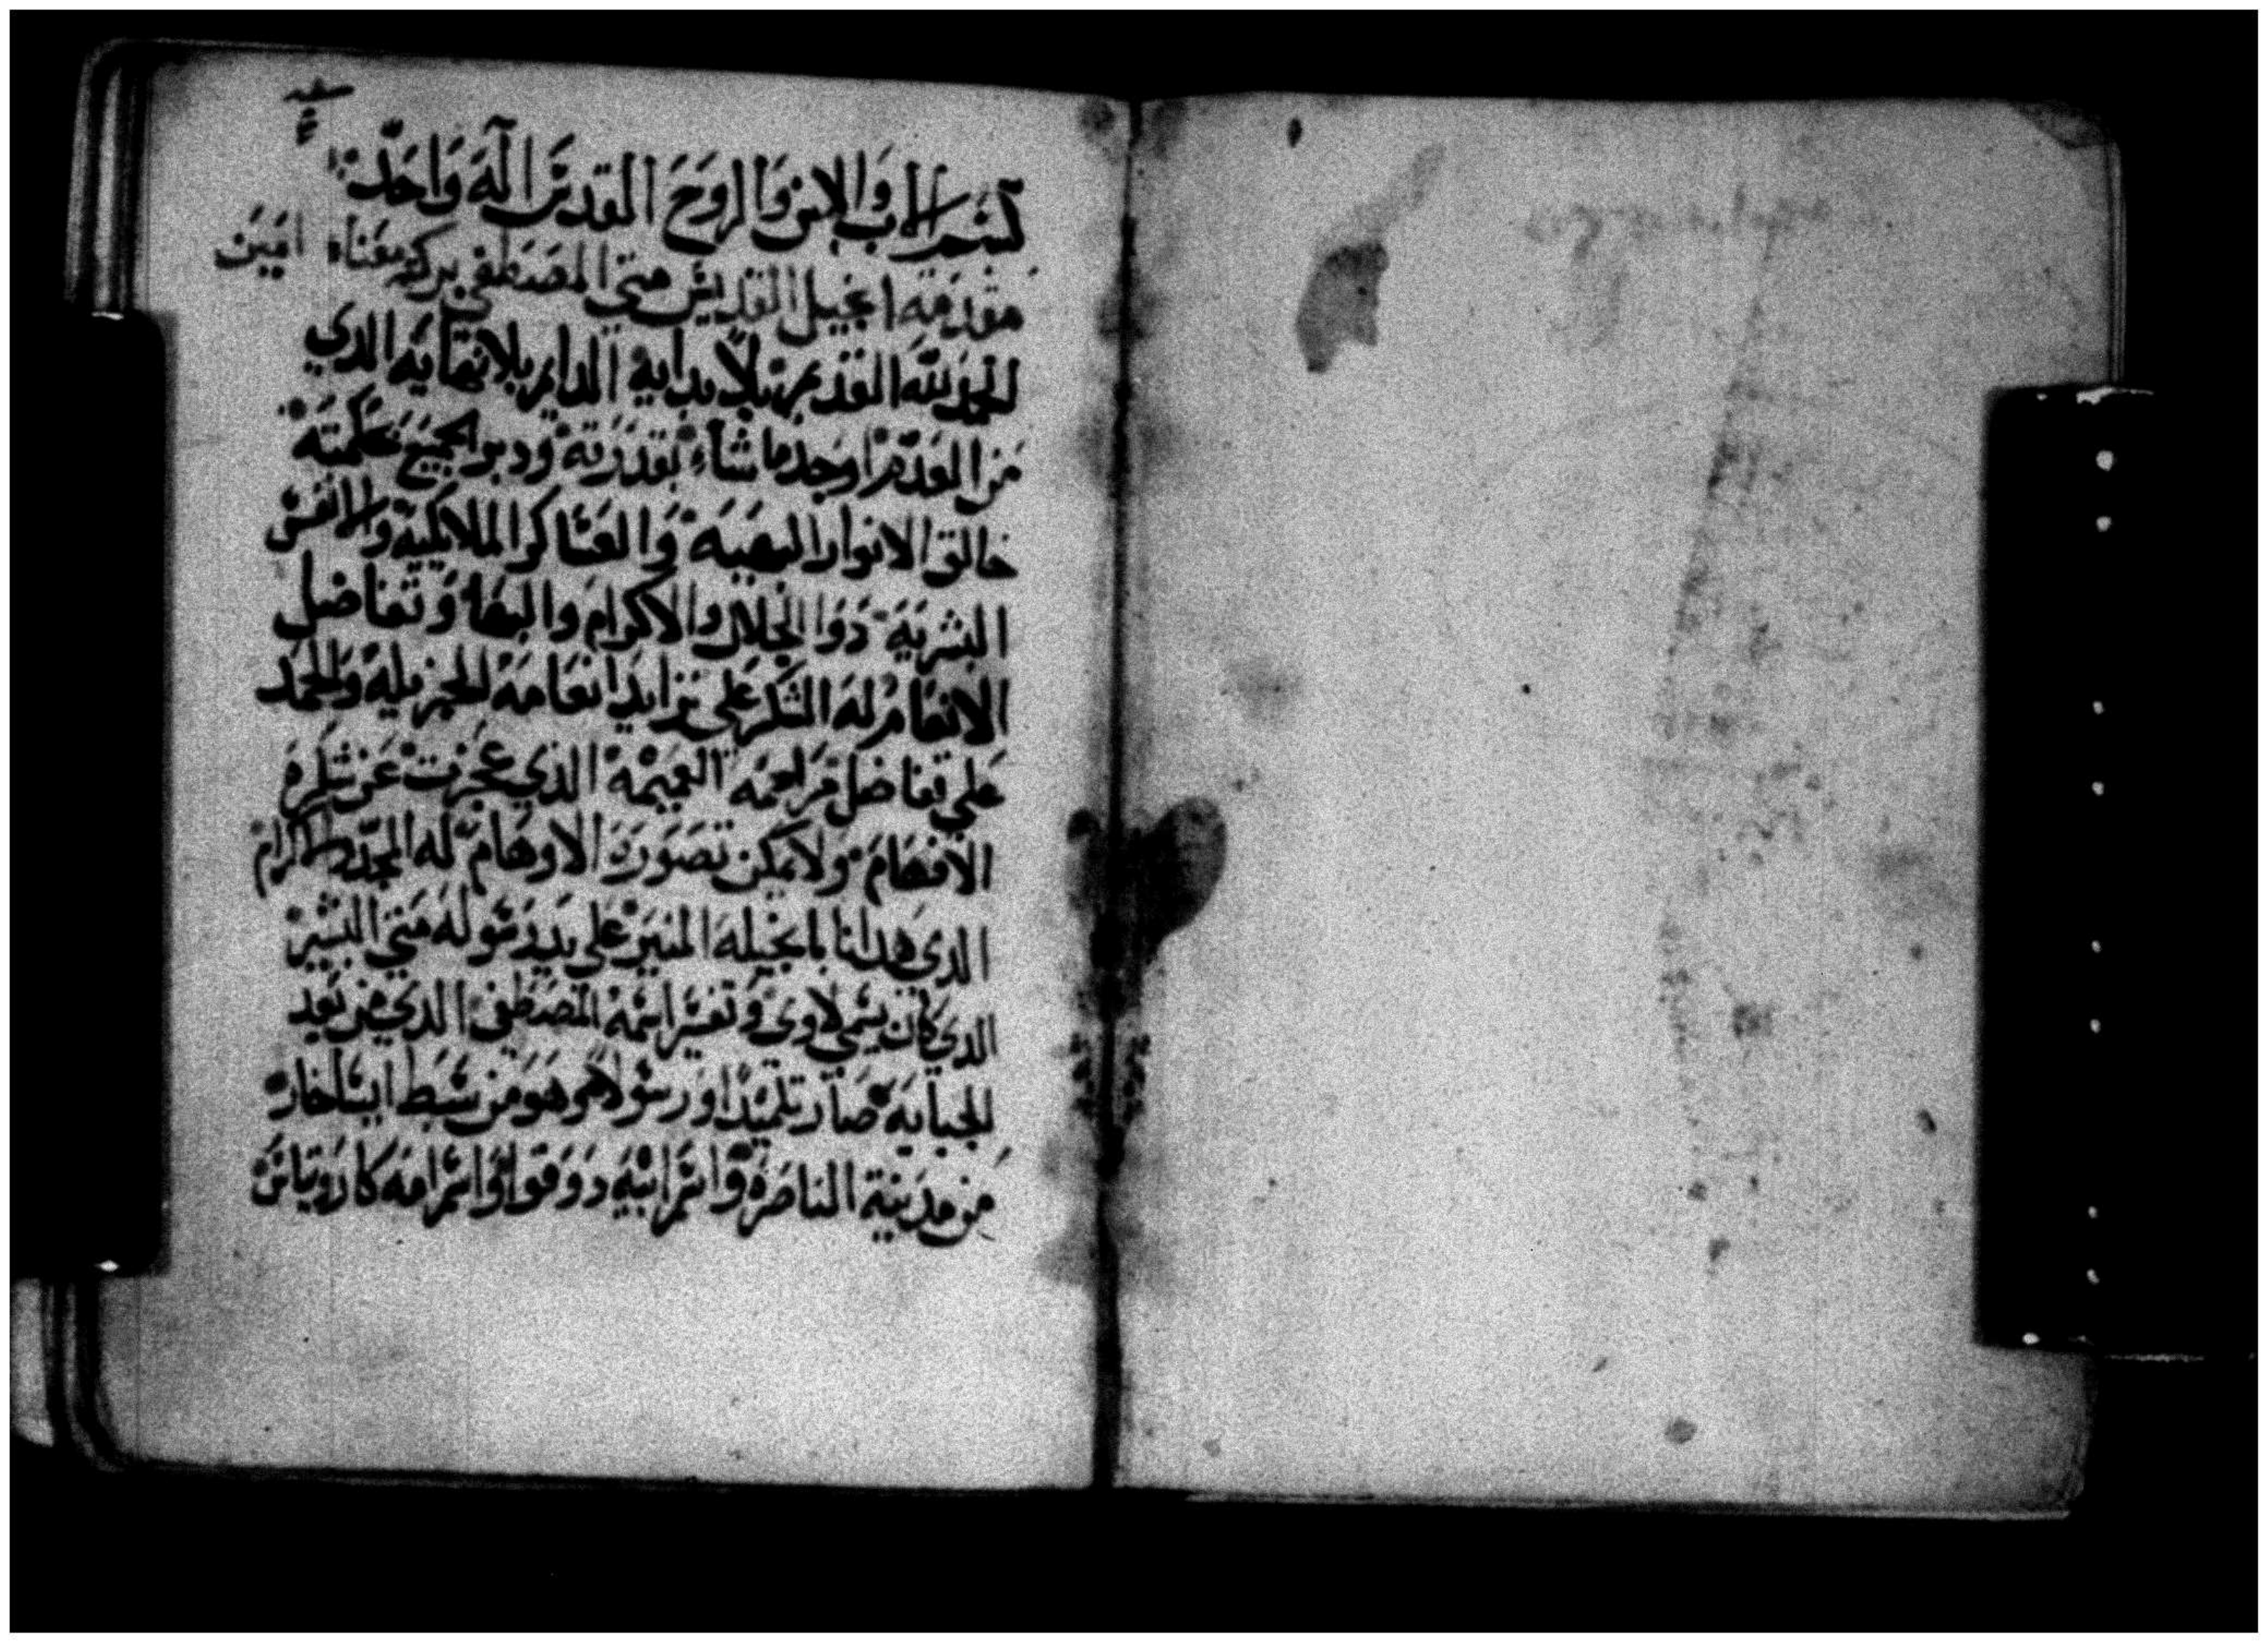 بسم الاب والابن والروح القدس اله واحد
مقدمة انجيل القديس متي المصطفي بركته معنا امين
الحمد لله القديم بلا بداية الدايم بلا نهايه الدي
من العدم اوجد ما شاء بقدرته ودبر الجميع بحكمته
خالق الانوار البهيه والعساكر الملايكيه والانفس
البشريه دوا الجلال والاكرام والبها وتفاضل
الانعام له الشكر علي تزايد انعامه الجزيله والحمد
علي تفاضل مراحمه العميمه الذي عجزت عن شكره
الافهام ولا يمكن تصوره الاوهام له المجد والاكرام
الدي هدانا بانجيله المنير علي يد رسوله متي البشير
الدي كان يسمي لاوي وتفسير اسمه المصطفي الدي من بعد
الجبايه صار تلميدا ورسولا هو وهو من سبط ايساخار
من مدينة الناصرة واسم ابيه دوقوا واسم امه كاروتياس